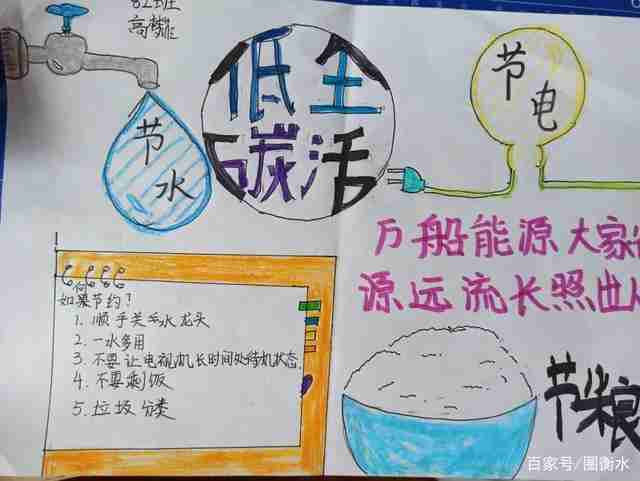 82班
低碳
生活
节水
节电
万船能源大家
源远流长照出
如何节约？
1. 顺手关水龙头
2. 一水多用
3. 不要让电视机长时间处待机状态.
4. 不要剩饭
5. 垃圾分类
节粮
百家号/圈衡水